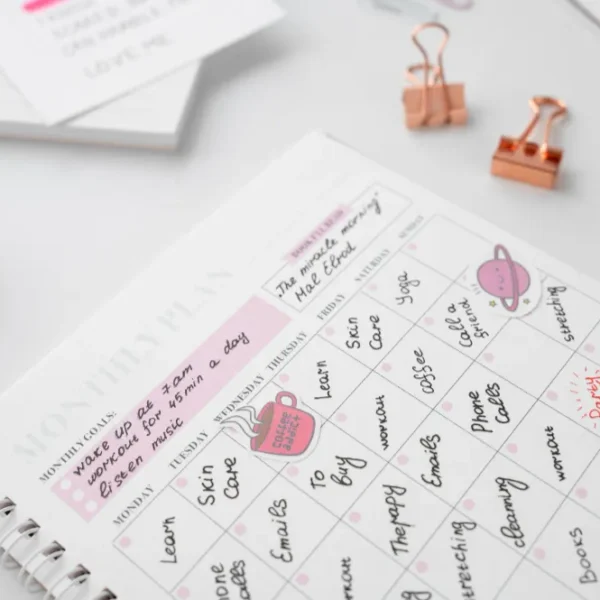 LOVE ME
MONTHLY PLAN
MONTHLY GOALS:
wake up at 7am
workout for 45min a day
listen music
BOOK I'LL READ
"The miracle morning"
Mal Elrod
MONDAY
TUESDAY
WEDNESDAY
THURSDAY
FRIDAY
SATURDAY
SUNDAY
Learn
Skin
Care
coffee
addict
Learn
Skin
Care
Yoga
hone
calls
Emails
To
Buy
workout
coffee
Call a
friend
rkout
Therapy
Emails
Phone
Calls
stretching
g
tretching
cleaning
workout
Party
Books